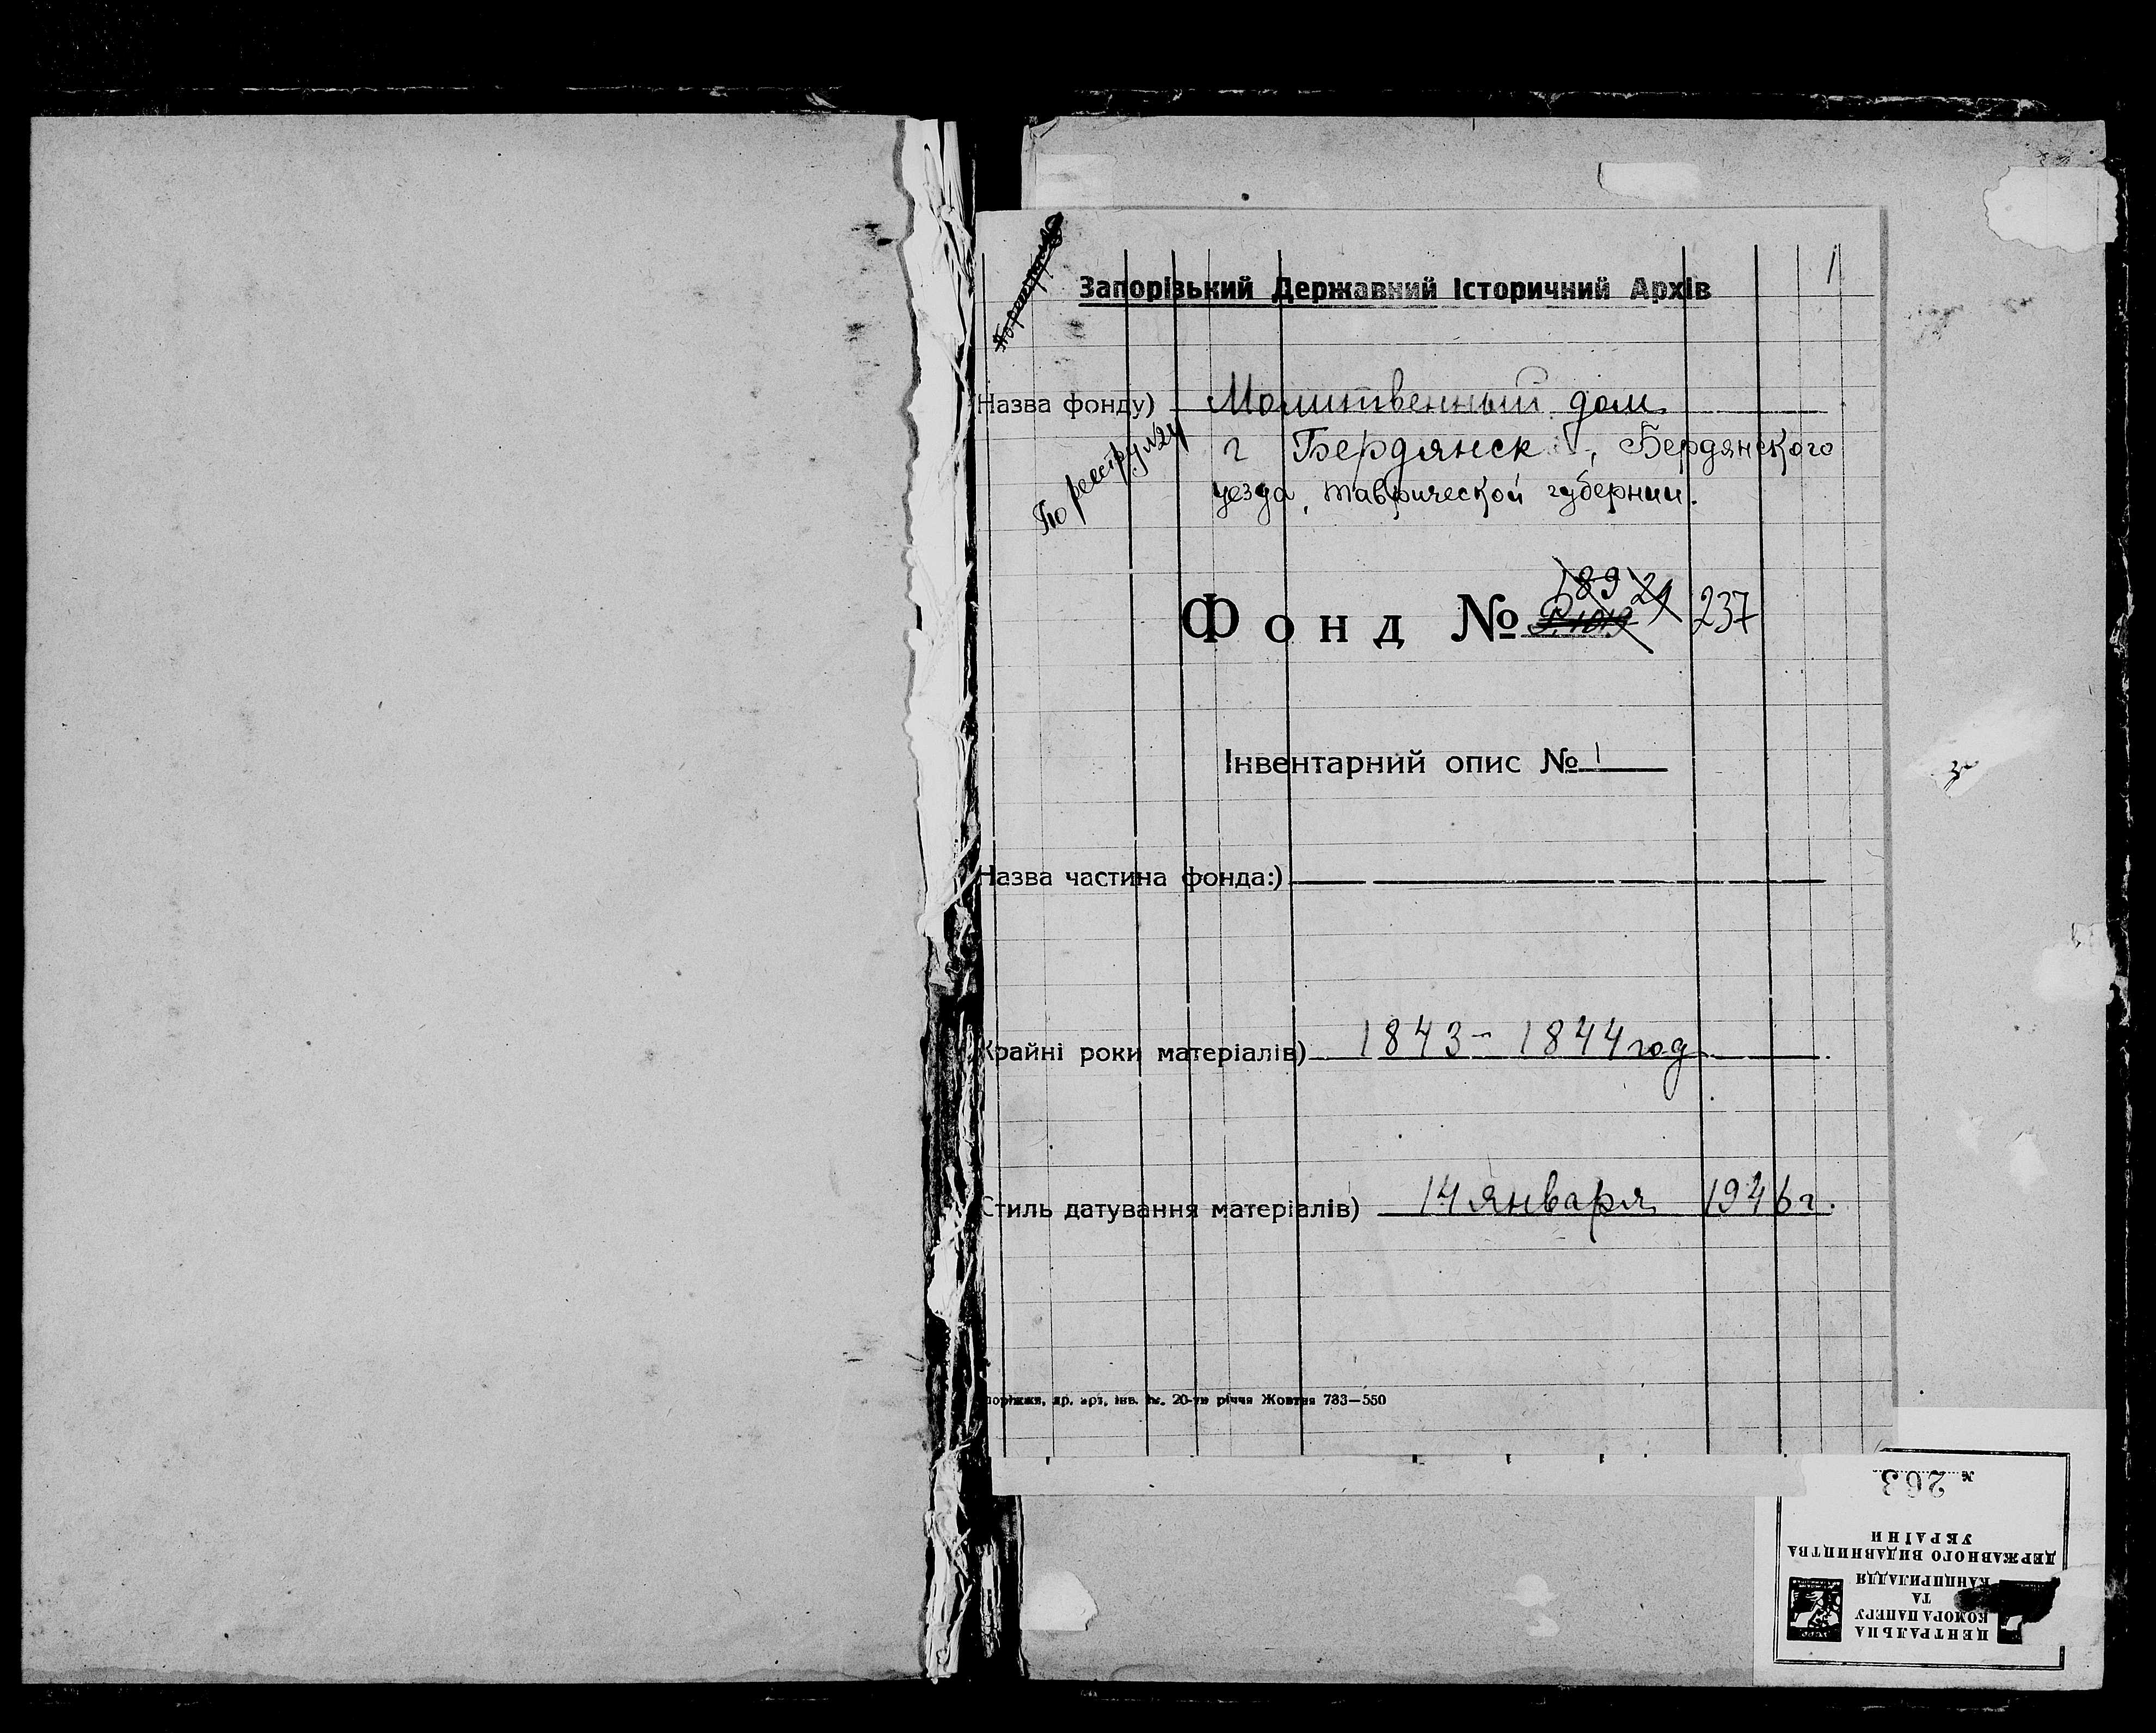 1
Запорізький Державний Історичний Архів
Назва фонду) Молитвенный дом
г Бердянск, Бердянского
уезда, Таврической губернии.
По реестру №24
Фонд № 189 21 237
Інвентарний опис № 1
Назва частина фонда:)
Крайні роки матеріалів) 1843 - 1844 год
Стиль датування матеріалів) 14 января 1946 г.
20-ти річчя Жовтня 733—550
ЦЕНТРАЛЬНА
КОМОРА ПАПЕРУ
ТА
КАНЦПРИЛАДДЯ
ДЕРЖАВНОГО ВИДАВНИЦТВА
УКРАЇНИ
№ 263